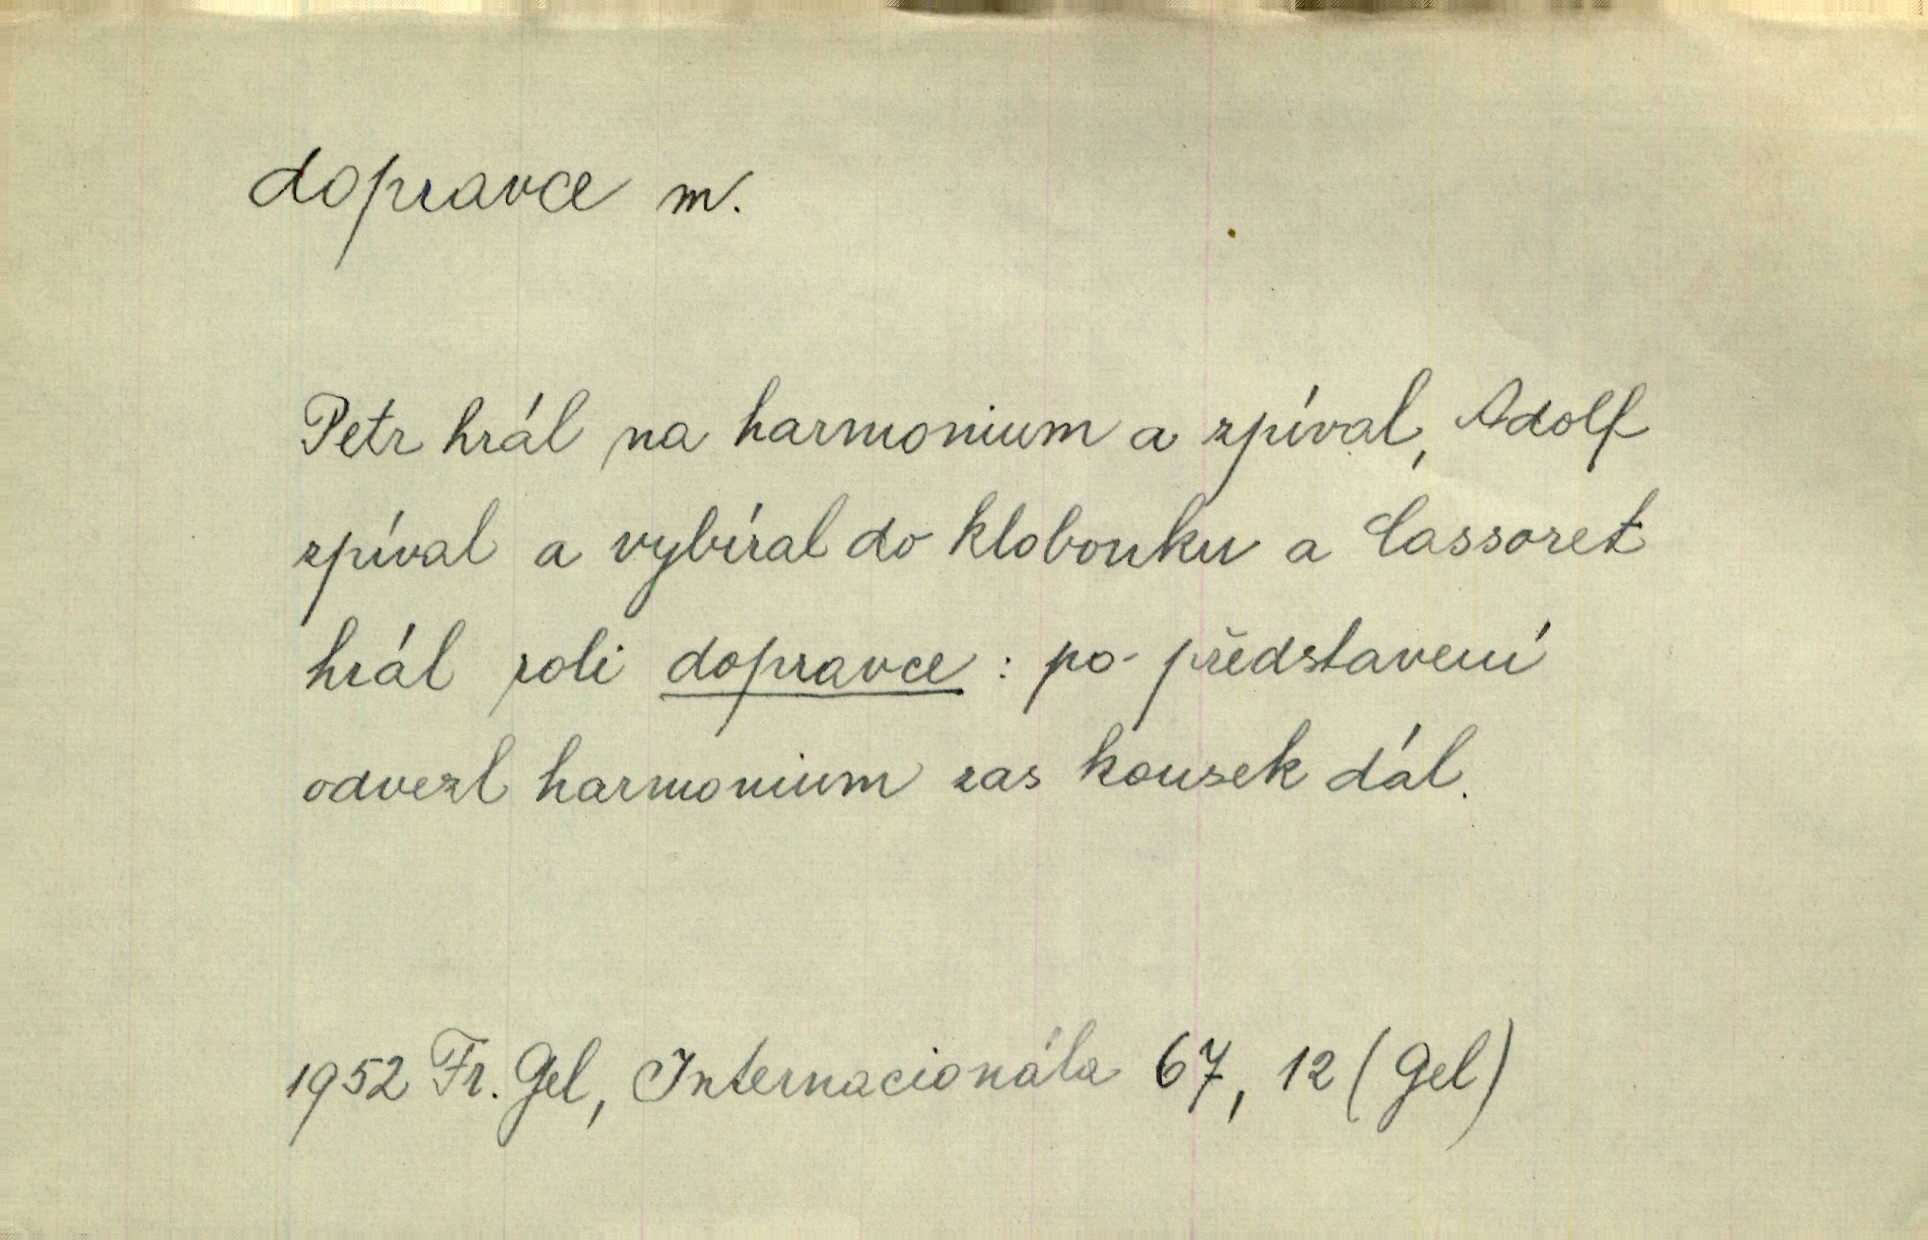 dopravce m.
Petr hrál na harmonium a zpíval, Adolf
zpíval a vybíral do klobouku a Cassoret
hrál roli dopravce : po představení
odvezl harmonium zas kousek dál.
1952 Fr. Gel, Internacionála 67, 12 (Gel)